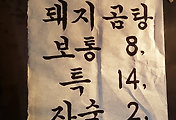 돼지곰탕
보통 8,
특 14,
2,